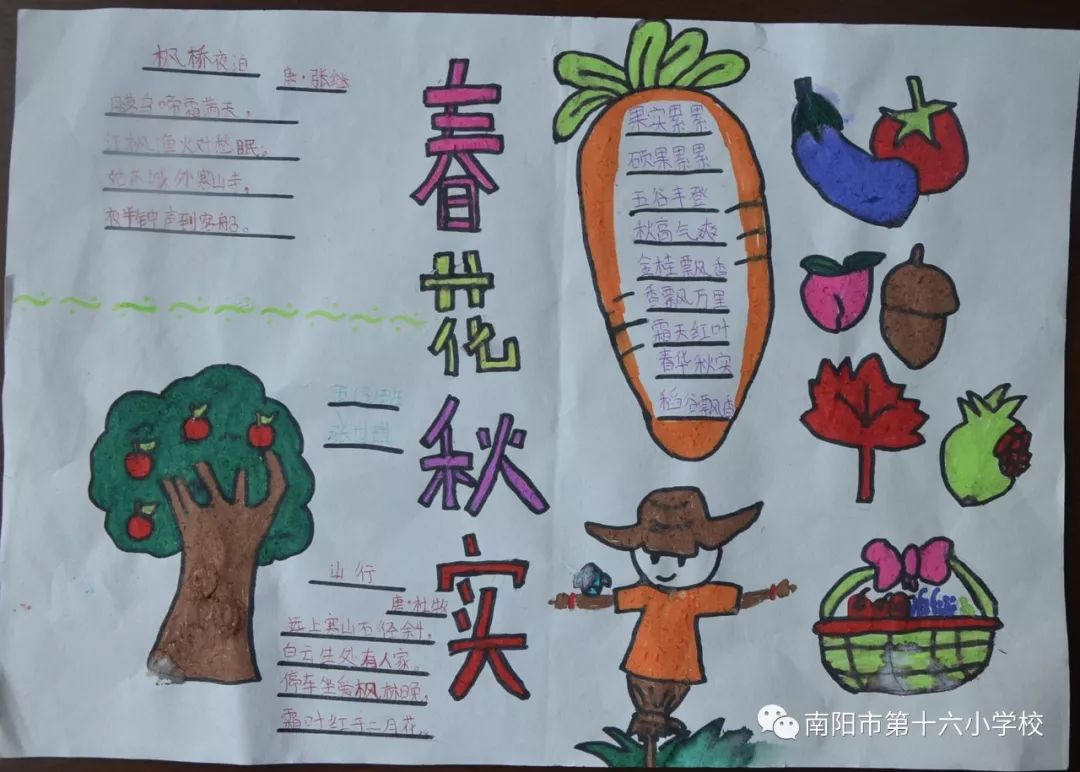 枫桥夜泊
唐·张继
月落乌啼霜满天，
江枫渔火对愁眠。
姑苏城外寒山寺，
夜半钟声到客船。
春花秋实
果实累累
硕果累累
五谷丰登
秋高气爽
金桂飘香
香飘万里
霜天红叶
春华秋实
稻谷飘香
山行
唐·杜牧
远上寒山石径斜，
白云生处有人家。
停车坐爱枫林晚，
霜叶红于二月花。
南阳市第十六小学校